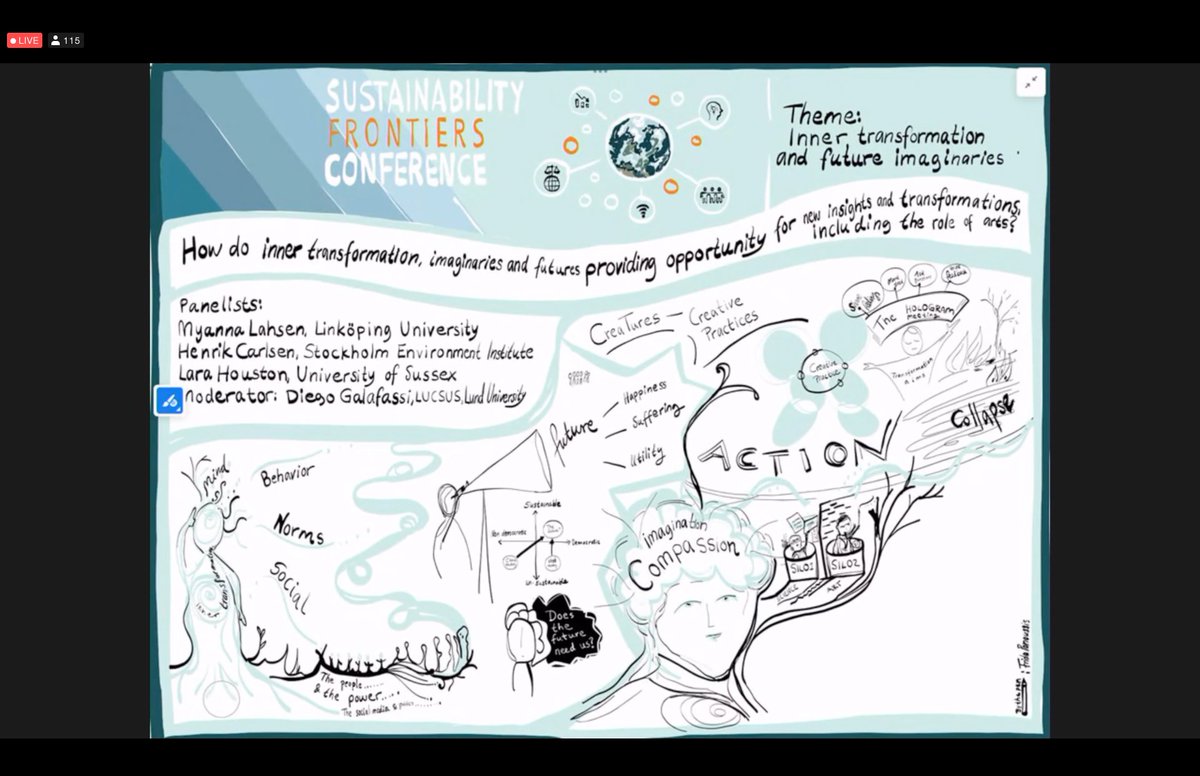 LIVE 115
SUSTAINABILITY
FRONTIERS
CONFERENCE
Theme:
Inner transformation
and future imaginaries
How do inner transformation, imaginaries and futures providing opportunity for new insights and transformations,
including the role of arts?
Panelists:
Myanna Lahsen, Linköping University
Henrik Carlsen, Stockholm Environment Institute
Lara Houston, University of Sussex
Moderator: Diego Galafassi, LUCSUS, Lund University
CreaTures — Creative
Practices
The HOLOGRAM
meeting
Creative
Practice
Transformation
Collapse
ACTION
future
Happiness
Suffering
Utility
Mind
Behavior
Norms
Social
inner transforming
Sustainable
Non democratic
Democratic
Un-Sustainable
Does
the
future
need us?
imagination
Compassion
SILO1
SILO2
SCIENCE
ART
The people......
& the power....
The social media &
Frida Panoussis